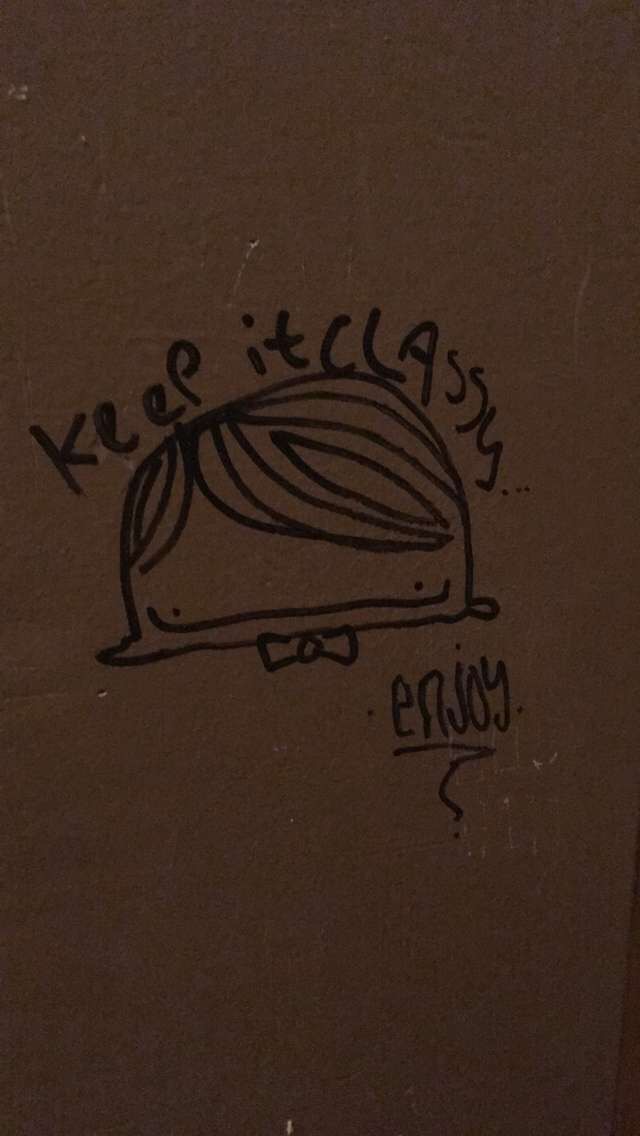 Keep it CLAssy...
enjoy.